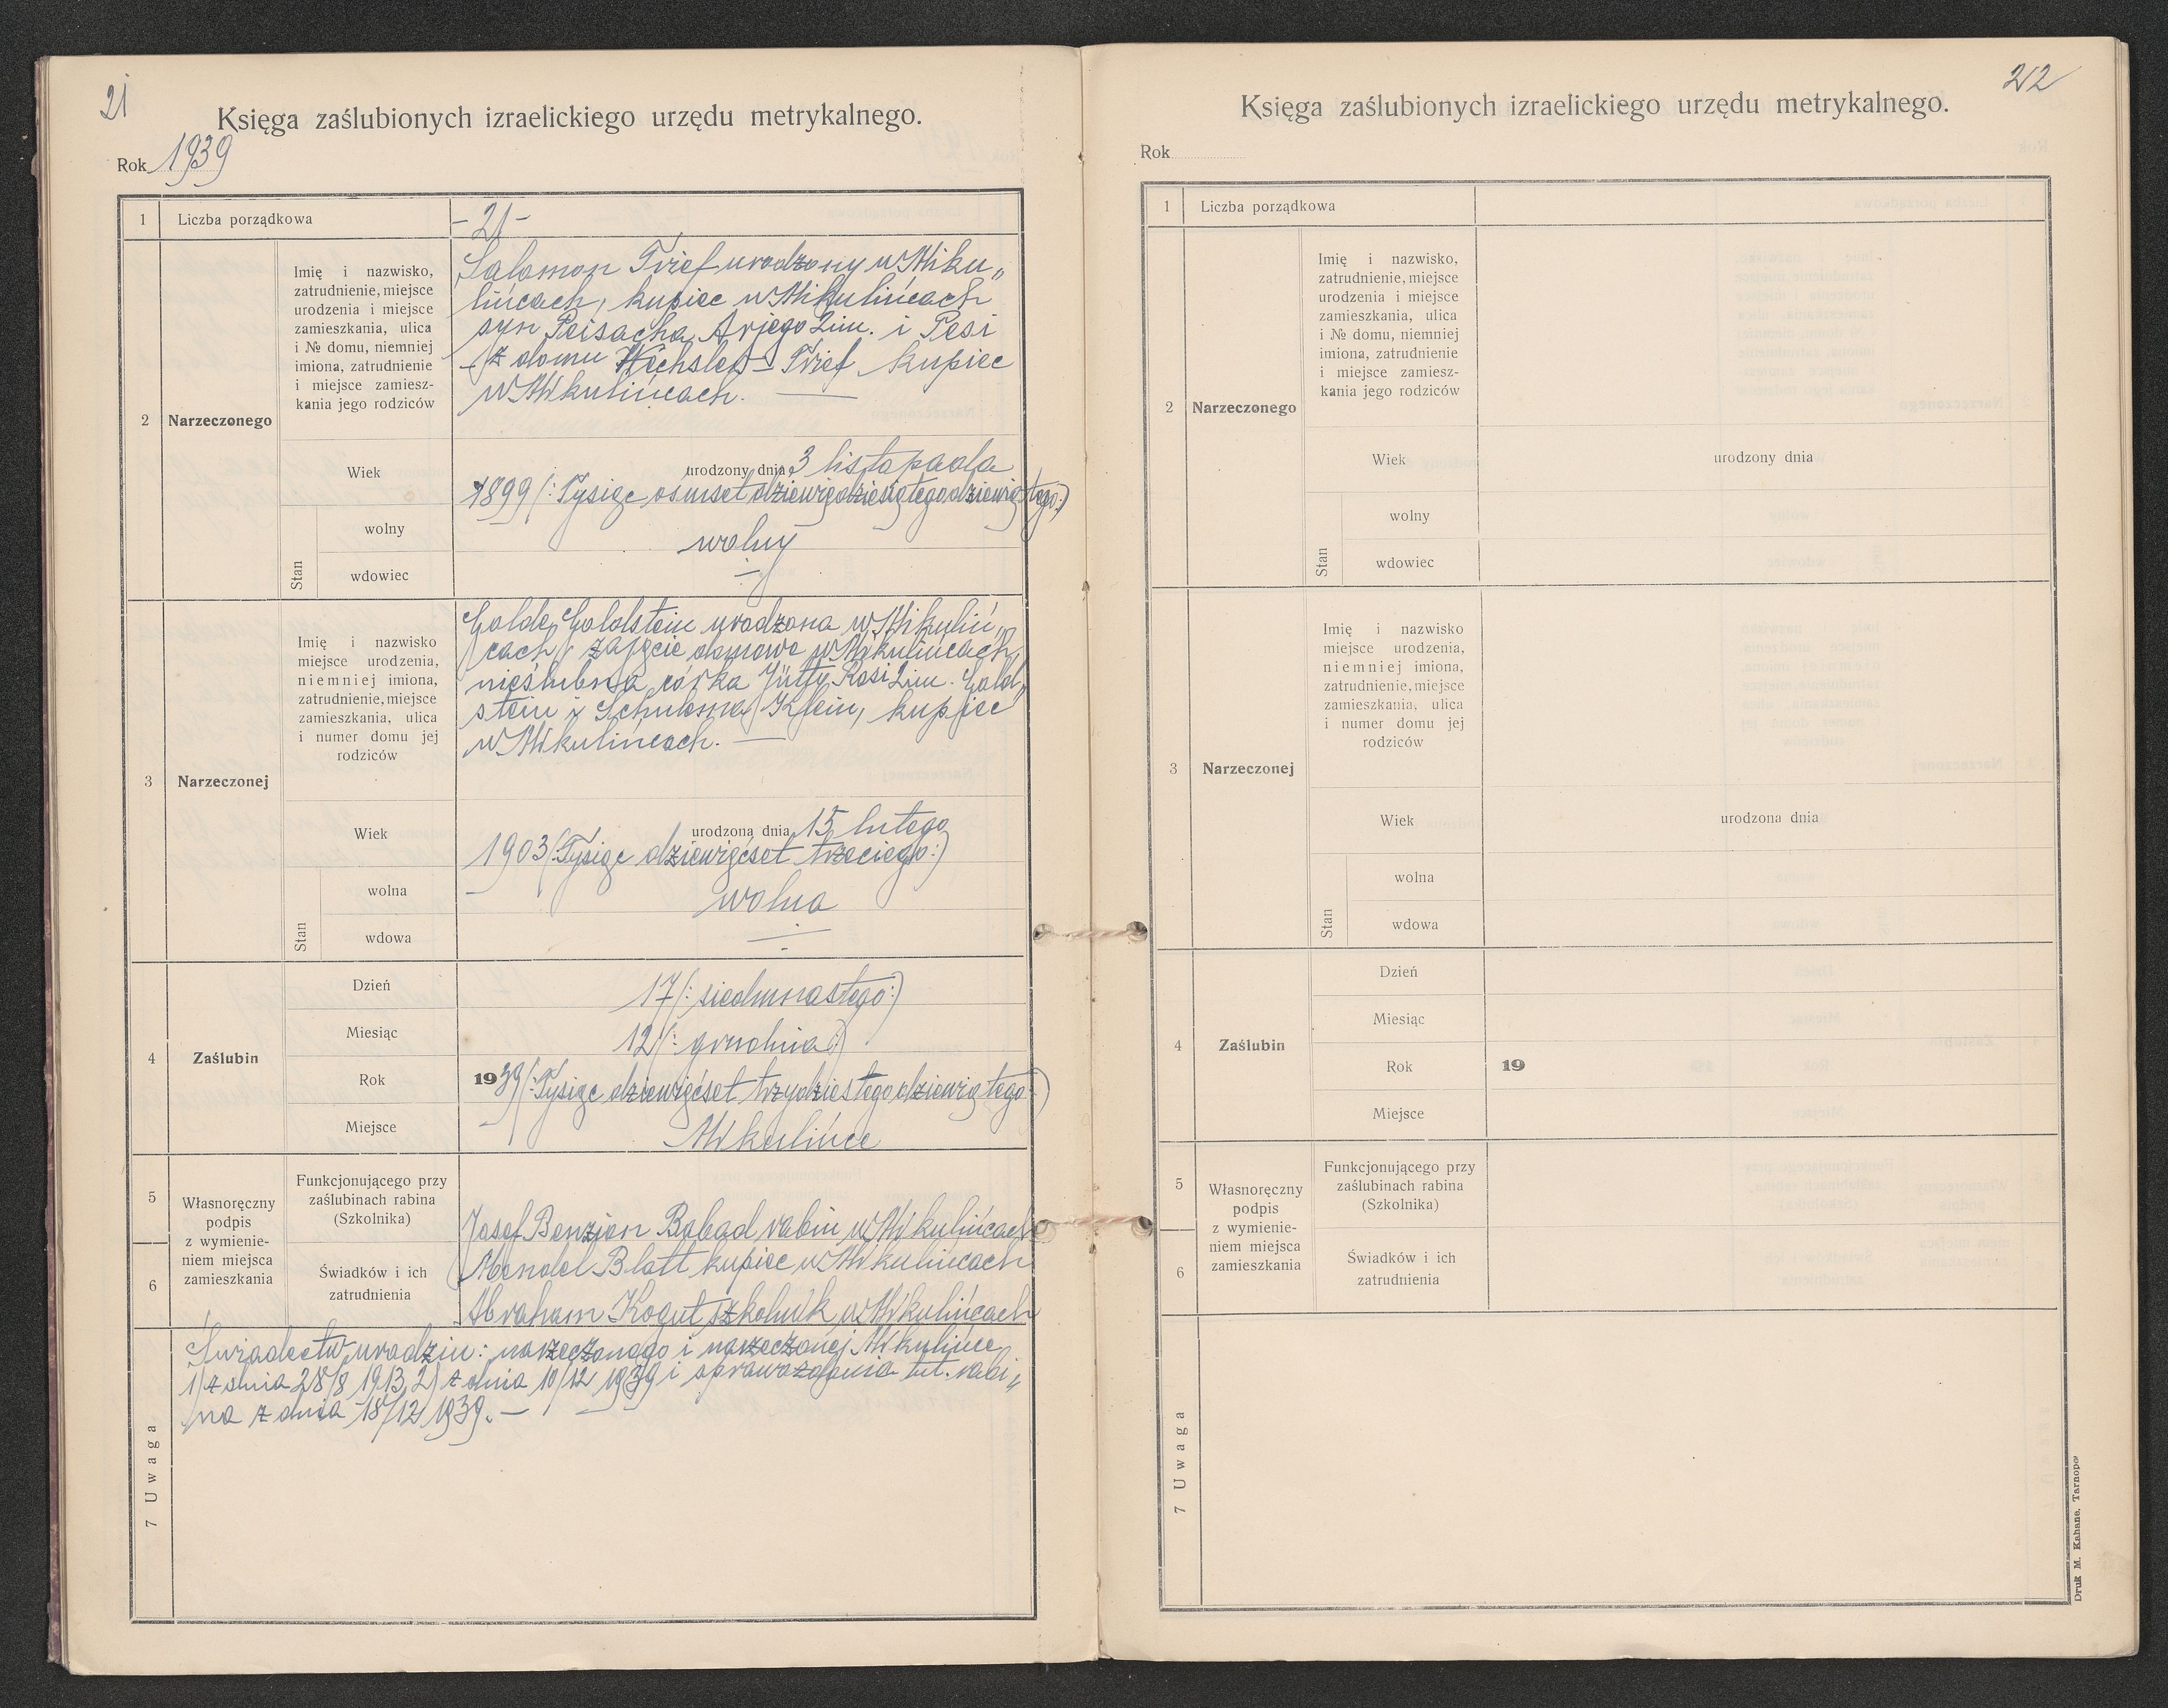 21
Księga zaślubionych izraelickiego urzędu metrykalnego.
Rok 1939
1 Liczba porządkowa
- 21 -
2 Narzeczonego
Imię i nazwisko,
zatrudnienie, miejsce
urodzenia i miejsce
zamieszkania, ulica
i № domu, niemniej
imiona, zatrudnienie
i miejsce zamiesz-
kania jego rodziców
Salomon Trief urodzony w Miku„
lińcach, kupiec w Mikulińcach
syn Peisacha Arjego 2im. i Pesi
z domu Wechsler - Trief kupiec
w Mikulińcach. —
Wiek
urodzony dnia 3 listopada
1899 (: Tysiąc ośmset dziewięćdziesiątego dziewiątego :)
Stan
wolny
wolny
wdowiec
3 Narzeczonej
Imię i nazwisko
miejsce urodzenia,
niemniej imiona,
zatrudnienie, miejsce
zamieszkania, ulica
i numer domu jej
rodziców
Golde Goldstein urodzona w Mikuliń„
cach, zajęcie domowe w Mikulińcach,
nieślubna córka Jütty Rosi 2im. Gold„
stein i Schulema Klein, kupiec
w Mikulińcach. —
Wiek
urodzona dnia 15 lutego
1903 (: Tysiąc dziewięćset trzeciego :)
Stan
wolna
wolna
wdowa
4 Zaślubin
Dzień
17 (: siedmnastego :)
Miesiąc
12 (: grudnia :)
Rok
1939 (: Tysiąc dziewięćset trzydziestego dziewiątego :)
Miejsce
Mikulińce
5
6
Własnoręczny
podpis
z wymienie-
niem miejsca
zamieszkania
Funkcjonującego przy
zaślubinach rabina
(Szkolnika)
Josef Benzion Babad rabin w Mikulińcach
Świadków i ich
zatrudnienia
Mendel Blatt kupiec w Mikulińcach
Abraham Kogut szkolnik w Mikulińcach
7 Uwaga
Świadectw urodzin: narzeczonego i narzeczonej Mikulińce
1) z dnia 28/8 1913, 2) z dnia 10/12 1939 i sprawozdania tut. rabi„
na z dnia 18/12 1939. —
22
Księga zaślubionych izraelickiego urzędu metrykalnego.
Rok
1 Liczba porządkowa
2 Narzeczonego
Imię i nazwisko,
zatrudnienie, miejsce
urodzenia i miejsce
zamieszkania, ulica
i № domu, niemniej
imiona, zatrudnienie
i miejsce zamiesz-
kania jego rodziców
Wiek
urodzony dnia
Stan
wolny
wdowiec
3 Narzeczonej
Imię i nazwisko
miejsce urodzenia,
niemniej imiona,
zatrudnienie, miejsce
zamieszkania, ulica
i numer domu jej
rodziców
Wiek
urodzona dnia
Stan
wolna
wdowa
4 Zaślubin
Dzień
Miesiąc
Rok
19
Miejsce
5
6
Własnoręczny
podpis
z wymienie-
niem miejsca
zamieszkania
Funkcjonującego przy
zaślubinach rabina
(Szkolnika)
Świadków i ich
zatrudnienia
7 Uwaga
Druk M. Kahane, Tarnopol